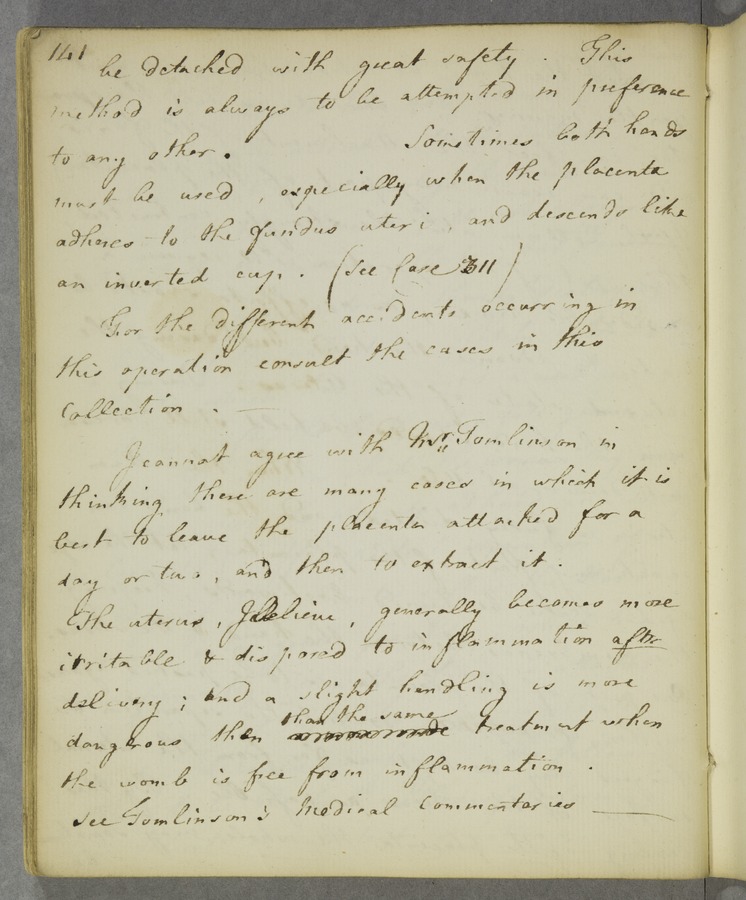 141
be detached with great safety. This
method is always to be attempted in preference
to any other. Sometimes both hands
must be used, especially when the placenta
adheres to the fundus uteri, and descends like
an inverted cup. (See Case 311)
For the different accidents occurring in
this operation consult the cases in this
Collection.
I cannot agree with Mr. Tomlinson in
thinking there are many cases in which it is
best to leave the placenta attached for a
day or two, and then to extract it.
The uterus, I believe, generally becomes more
irritable & disposed to inflammation after
delivery; and a slight handling is more
than the same
dangerous then treatment when
the womb is free from inflammation.
See Tomlinson's Medical Commentaries